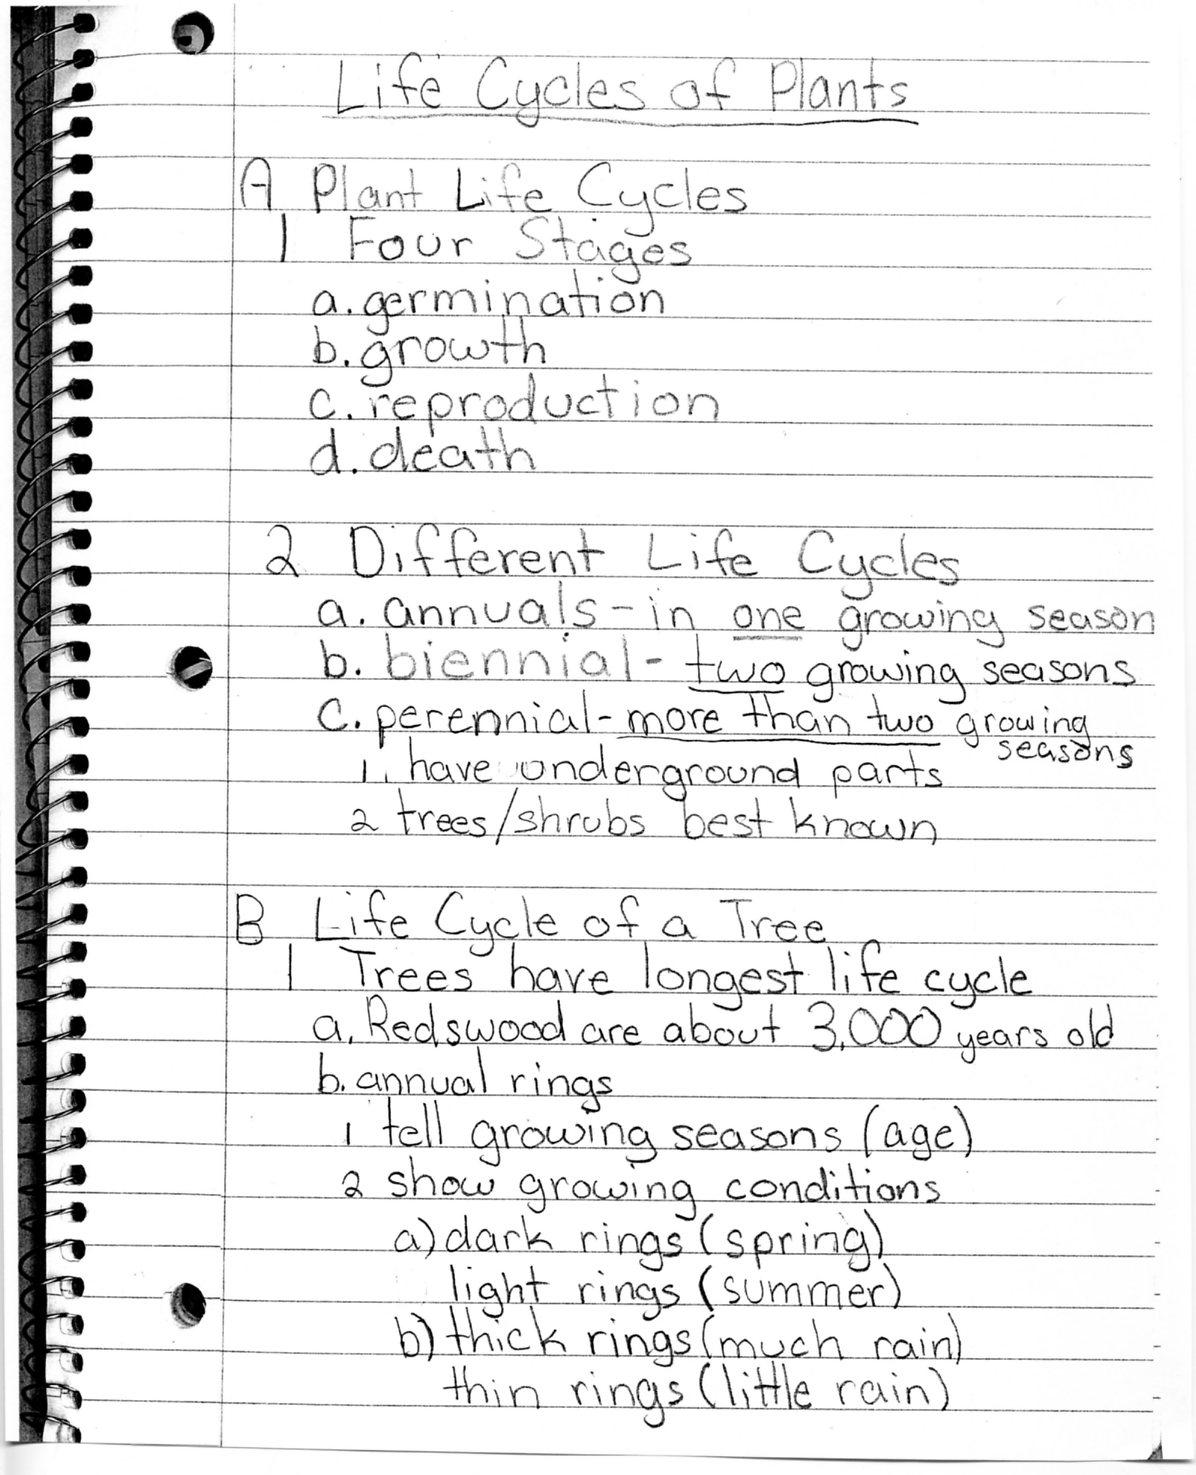 Life Cycles of Plants
A Plant Life Cycles
1 Four Stages
a. germination
b. growth
c. reproduction
d. death
2 Different Life Cycles
a. annuals - in one growing season
b. biennial - two growing seasons
c. perennial - more than two growing
seasons
1. have underground parts
2 trees/shrubs best known
B Life Cycle of a Tree
1 Trees have longest life cycle
a. Redswood are about 3,000 years old
b. annual rings
1 tell growing seasons (age)
2 show growing conditions
a) dark rings (spring)
light rings (summer)
b) thick rings (much rain)
thin rings (little rain)